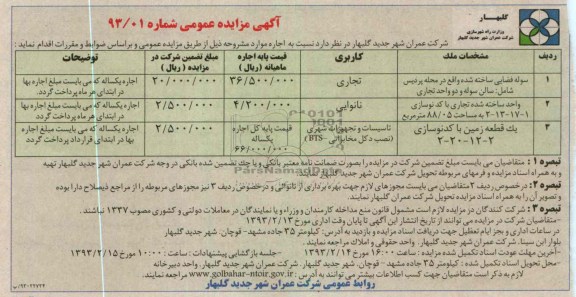 گلبهار
وزارت راه و شهرسازی
شرکت عمران شهر جدید گلبهار
آگهی مزایده عمومی شماره ۹۳/۰۱
شرکت عمران شهر جدید گلبهار در نظر دارد نسبت به اجاره موارد مشروحه ذیل از طریق مزایده عمومی و براساس ضوابط و مقررات اقدام نماید :
ردیف | مشخصات ملک | کاربری | قیمت پایه اجاره ماهیانه (ریال) | مبلغ تضمین شرکت در مزایده (ریال) | توضیحات
۱ | سوله فضایی ساخته شده واقع در محله پردیس شامل: سالن سوله و دو واحد تجاری | تجاری | ۳۶/۵۰۰/۰۰۰ | ۲۰/۰۰۰/۰۰۰ | اجاره یکساله که می بایست مبلغ اجاره بها در ابتدای هر ماه پرداخت گردد.
۲ | واحد ساخته شده تجاری با کد نوسازی ۲-۱۳-۱۷-۱ به مساحت ۸۸/۰۵ مترمربع | نانوایی | ۴/۲۰۰/۰۰۰ | ۲/۵۰۰/۰۰۰ | اجاره یکساله که می بایست مبلغ اجاره بها در ابتدای هر ماه پرداخت گردد.
۳ | یک قطعه زمین با کدنوسازی ۲-۲۰-۱۲-۲ | تاسیسات و تجهیزات شهری (نصب دکل مخابراتی -BTS) | قیمت پایه کل اجاره یکساله ۶۶/۰۰۰/۰۰۰ | ۲/۵۰۰/۰۰۰ | اجاره یکساله که می بایست مبلغ اجاره بها در ابتدای قرارداد پرداخت گردد.
تبصره ۱ : متقاضیان می بایست مبلغ تضمین شرکت در مزایده را بصورت ضمانت نامه معتبر بانکی و یا چک تضمین شده بانکی در وجه شرکت عمران شهر جدید گلبهار تهیه
و به همراه اسناد مزایده و فرمهای مربوطه تحویل شرکت عمران شهر جدید گلبهار نمایند.
تبصره ۲: درخصوص ردیف ۲ متقاضیان می بایست مجوزهای لازم جهت بهره برداری از نانوائی و درخصوص ردیف ۳ نیز مجوزهای مربوطه را از مراجع ذیصلاح دارا بوده
و تصویر آن را به همراه اسناد مزایده تحویل شرکت عمران شهر جدید گلبهار نمایند.
تبصره ۳ : شرکت کنندگان در مزایده لازم است مشمول قانون منع مداخله کارمندان و وزراء و یا نمایندگان در معاملات دولتی و کشوری مصوب ۱۳۳۷ نباشند.
-متقاضیان شرکت در مزایده می توانند از تاریخ انتشار این آگهی تا پایان وقت اداری مورخ ۱۳۹۳/۲/۱۳
در ساعات اداری و بجز ایام تعطیل جهت دریافت اسناد مزایده و بازدید به آدرس: کیلومتر ۳۵ جاده مشهد- قوچان، شهر جدید گلبهار،
بلوار ابن سینا، شرکت عمران شهر جدید گلبهار، واحد حقوقی و املاک مراجعه نمایند.
-آخرین مهلت عودت اسناد تکمیل شده مزایده : ساعت ۱۶:۰۰ مورخ ۱۳۹۳/۲/۱۴ -جلسه بازگشایی پیشنهادات : ساعت ۱۰:۰۰ مورخ ۱۳۹۳/۲/۱۵
-محل تحویل اسناد تکمیل شده : کیلومتر ۳۵ جاده مشهد - قوچان، شهر جدید گلبهار، شرکت عمران شهر جدید گلبهار، واحد دبیرخانه
لازم به ذکر است متقاضیان جهت کسب اطلاعات بیشتر می توانند به آدرس : www.golbahar-ntoir.gov.ir مراجعه نمایند.
روابط عمومی شرکت عمران شهر جدید گلبهار